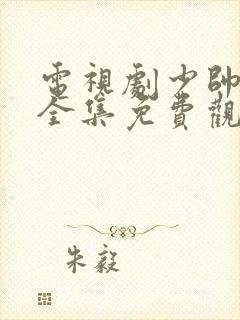 電視劇少帥
全集免費觀
朱毅